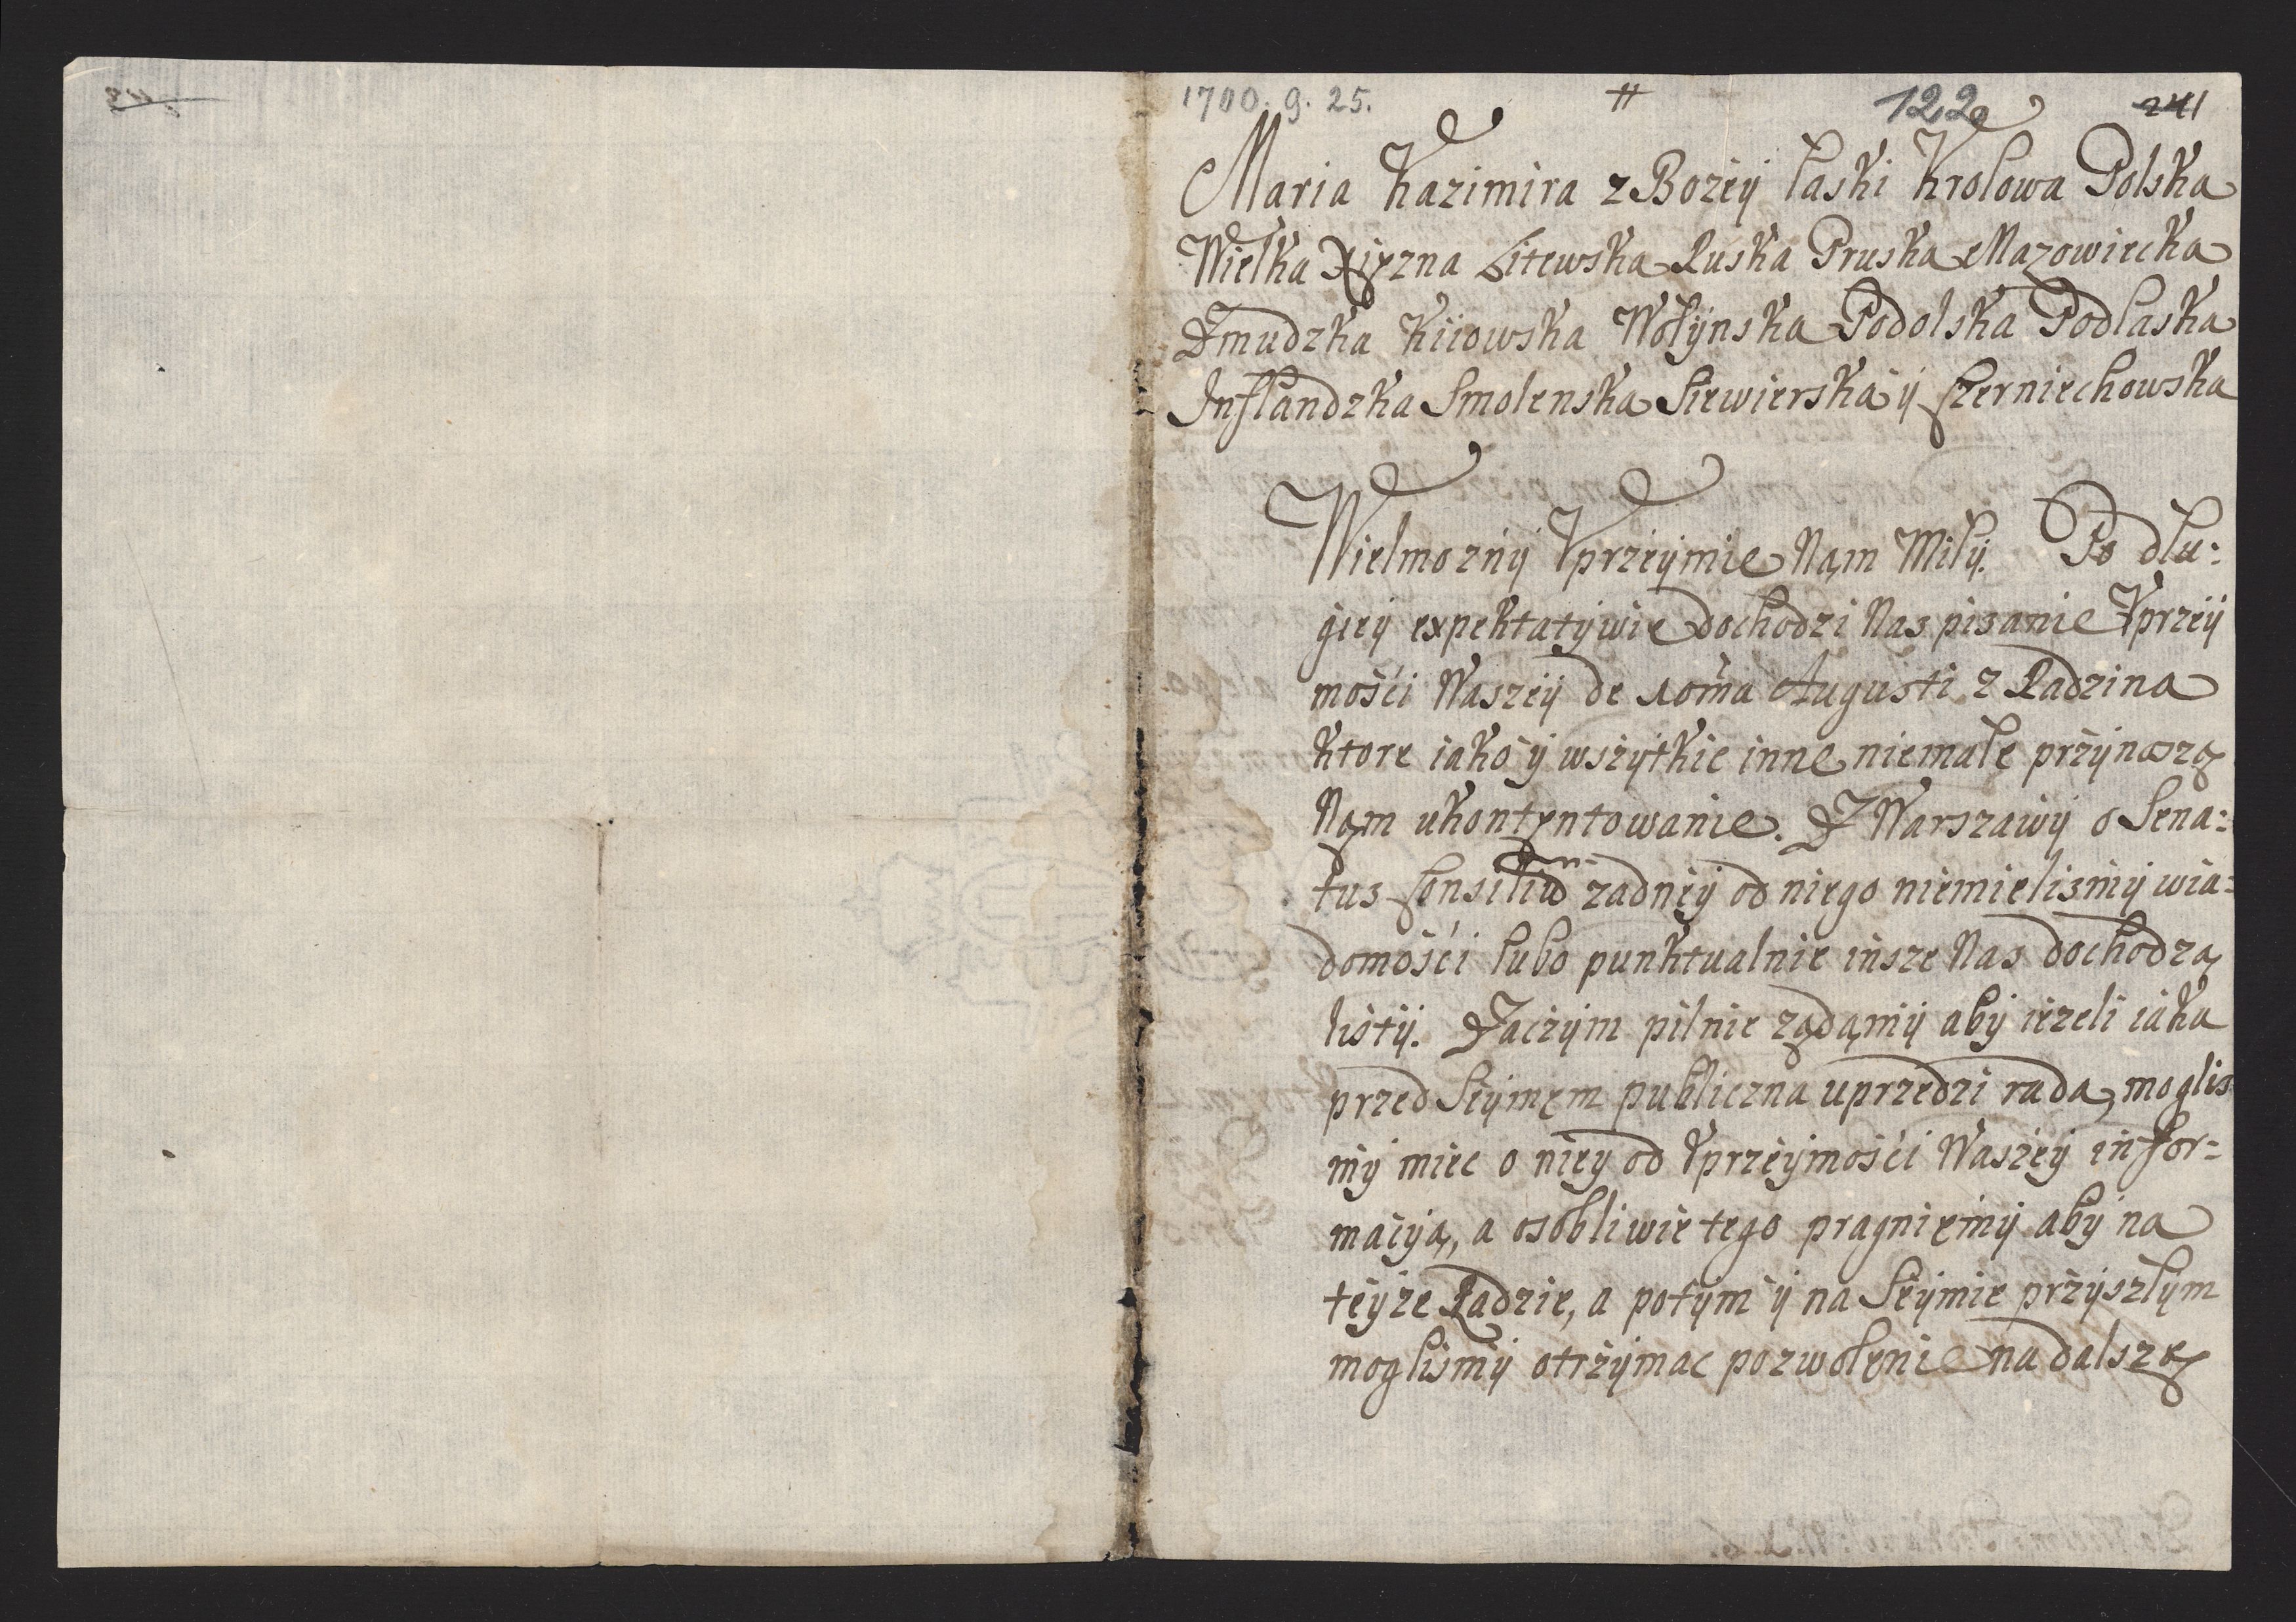 1700. 9. 25. # 122 241
Maria Kazimira z Bozey łaski Krolowa Polska
Wielka Xięzna Litewska Ruska Pruska Mazowiecka
Zmudzka Kiiowska Wołÿnska Podolska Podlaska
Inflandzka Smolenska Siewierska ÿ Czerniechowska
Wielmoznÿ Vprzeÿmie Nąm Miłÿ. Po dłu:
gieÿ expektatÿwie dochodzi Nas pisanie Vprzeÿ
mośći Waszeÿ de 10ma Augusti z Radzina
ktore iako ÿ wszÿtkie inne niemałe przÿnoszą
Nąm ukontentowanie. Z Warszawÿ o Sena:
tus Consiliũ zadneÿ od niego niemielismÿ wia:
domośći lubo punktualnie insze Nas dochodzą
listÿ. Zaczÿm pilnie ządąmÿ abÿ iezeli iaka
przed Seÿmem publiczna uprzedzi rada, moglis
mÿ miec o nieÿ od Vprzeÿmośći Waszeÿ infor:
macÿą, a osobliwie tego pragniemÿ abÿ na
teÿze Radzie, a potÿm ÿ na Seÿmie przÿszłÿm
moglismÿ otrzÿmac pozwolenie na dalszą